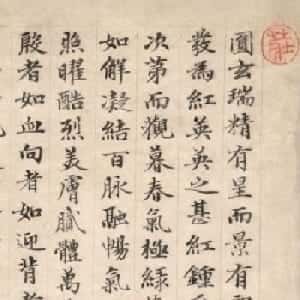 圓玄瑞精有星而景有
發為紅英英之甚紅鍾
次第而觀暮春氣極綠
如解凝結百脉融暢氣
照曜酷烈美膚膩體萬
殷者如血向者如迎背